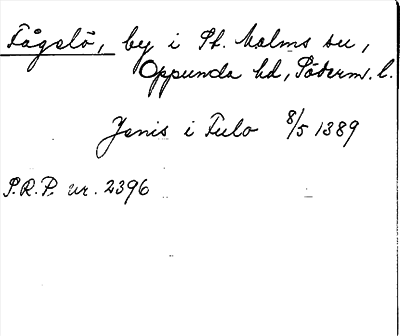 Fågelö, by i St. Malms sn,
Oppunda hd, Söderm. l.
Jenis i Fulo 8/5 1389
S.R.P. nr. 2396